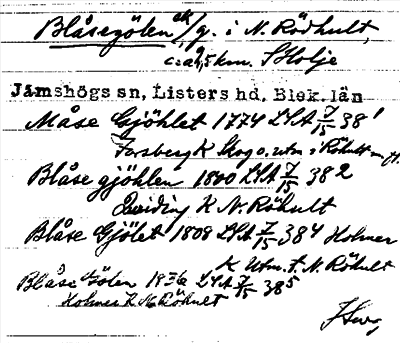 Blåsegölen ek/g. i N. Rödhult,
c:a 9,5 km. S Holje
Jämshögs sn, Listers hd, Blek. län
Måse Gjöhlet 1774 LSA 7/15 38¹
Forsberg K Skog o. utm i Röhult
Blåse gjöhlen 1800 LSA 7/15 38 2
K N. Röhult
Blåse Gjölet 1808 LSA 7/15 38 4 Holmer
K Utm. t. N. Röhult
Blåse Gölen 1836 LSA 7/15 38 5
Holmer K N. Röhult